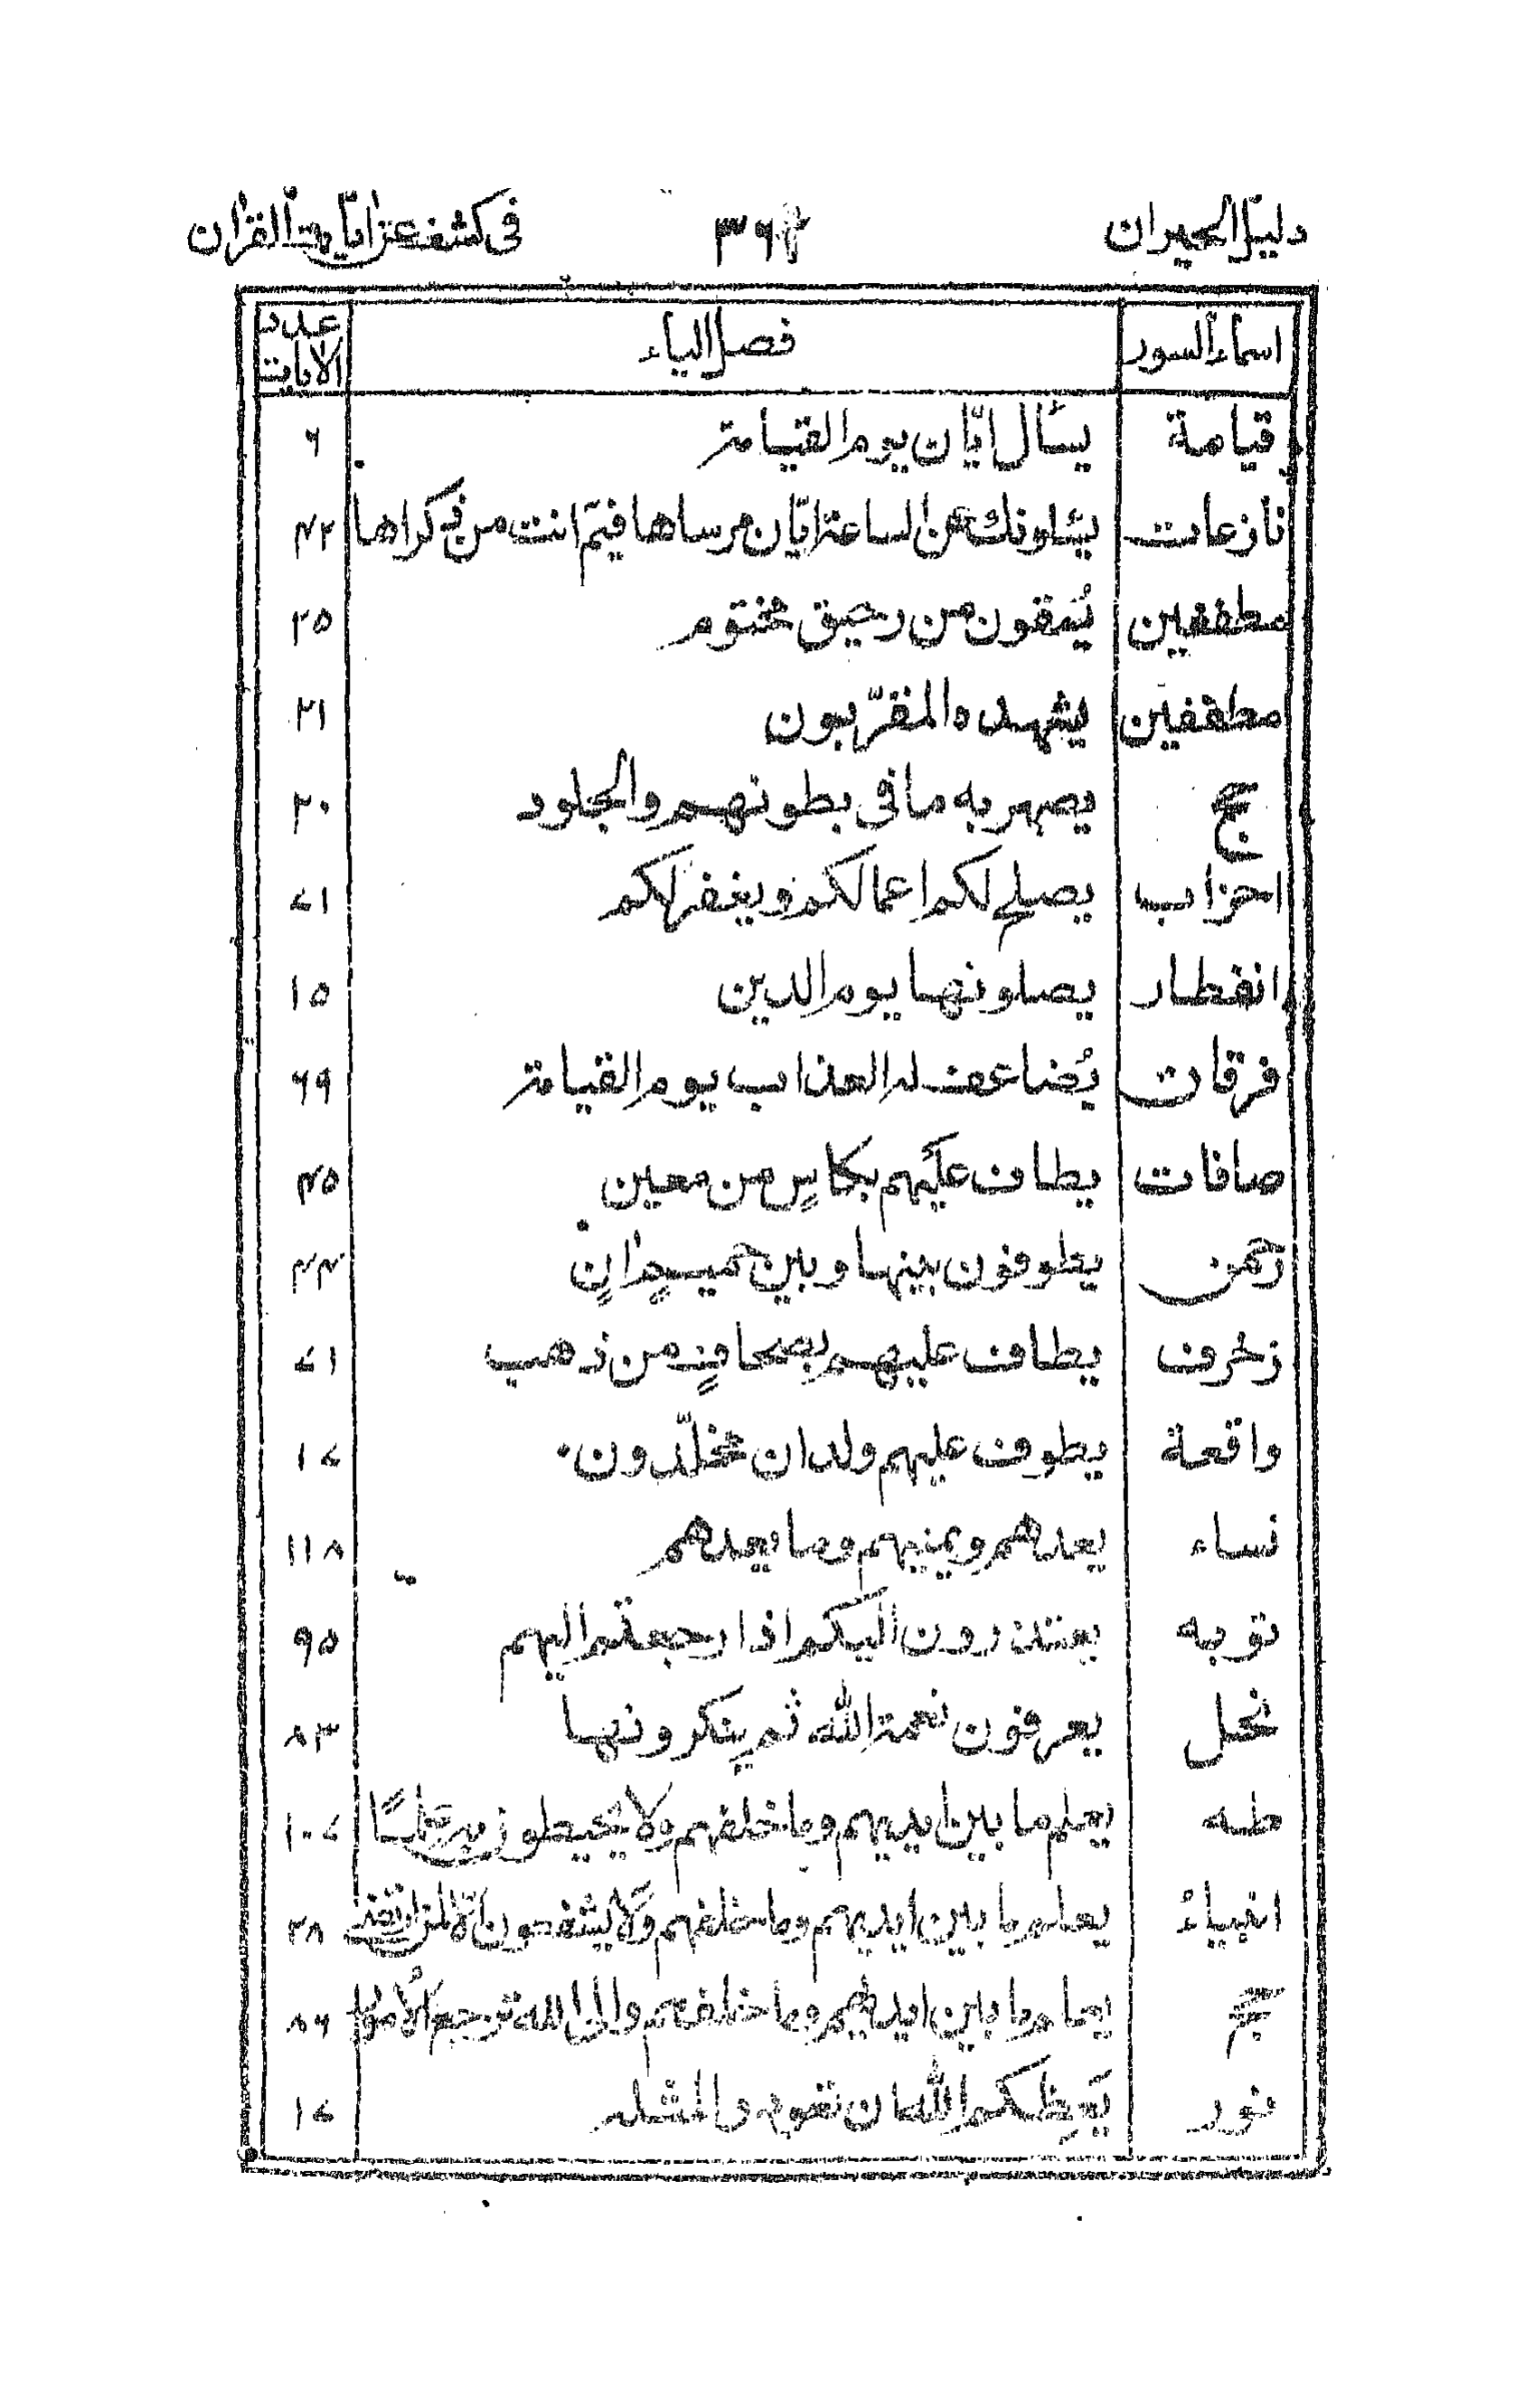 دليل الحيران ٣٦٢ في كشف عن ايات القران
اسماء السور فصل الياء عدد الايات
قيامة يسأل ايّان يوم القيامة ٦
نازعات يسئلونك عن الساعة ايّان مرساها فيمَ انت من ذكراها ٤٢
مطففين يُسقون من رحيق مختوم ٢٥
مطففين يشهده المقرّبون ٢١
حج يصهر به ما في بطونهم والجلود ٢٠
احزاب يصلح لكم اعمالكم ويغفر لكم ٧١
انفطار يصلونها يوم الدين ١٥
فرقان يُضاعف له العذاب يوم القيامة ٦٩
صافات يطاف عليهم بكاسٍ من معين ٤٥
رحمن يطوفون بينها وبين حميمٍ انٍ ٤٤
زخرف يطاف عليهم بصحافٍ من ذهب ٧١
واقعة يطوف عليهم ولدان مخلّدون ١٧
نساء يعدهم ويمنيهم وما يعدهم ١١٨
توبه يعتذرون اليكم اذا رجعتم اليهم ٩٥
نحل يعرفون نعمة الله ثم ينكرونها ٨٣
طه يعلم ما بين ايديهم وما خلفهم ولا يحيطون به علمًا ١٠٧
انبياء يعلم ما بين ايديهم وما خلفهم ولا يشفعون الّا لمن ارتضى ٢٨
حج يعلم ما بين ايديهم وما خلفهم والى الله ترجع الأمور ٨٦
نور يَعِظكم الله ان تعودوا لمثله ١٧